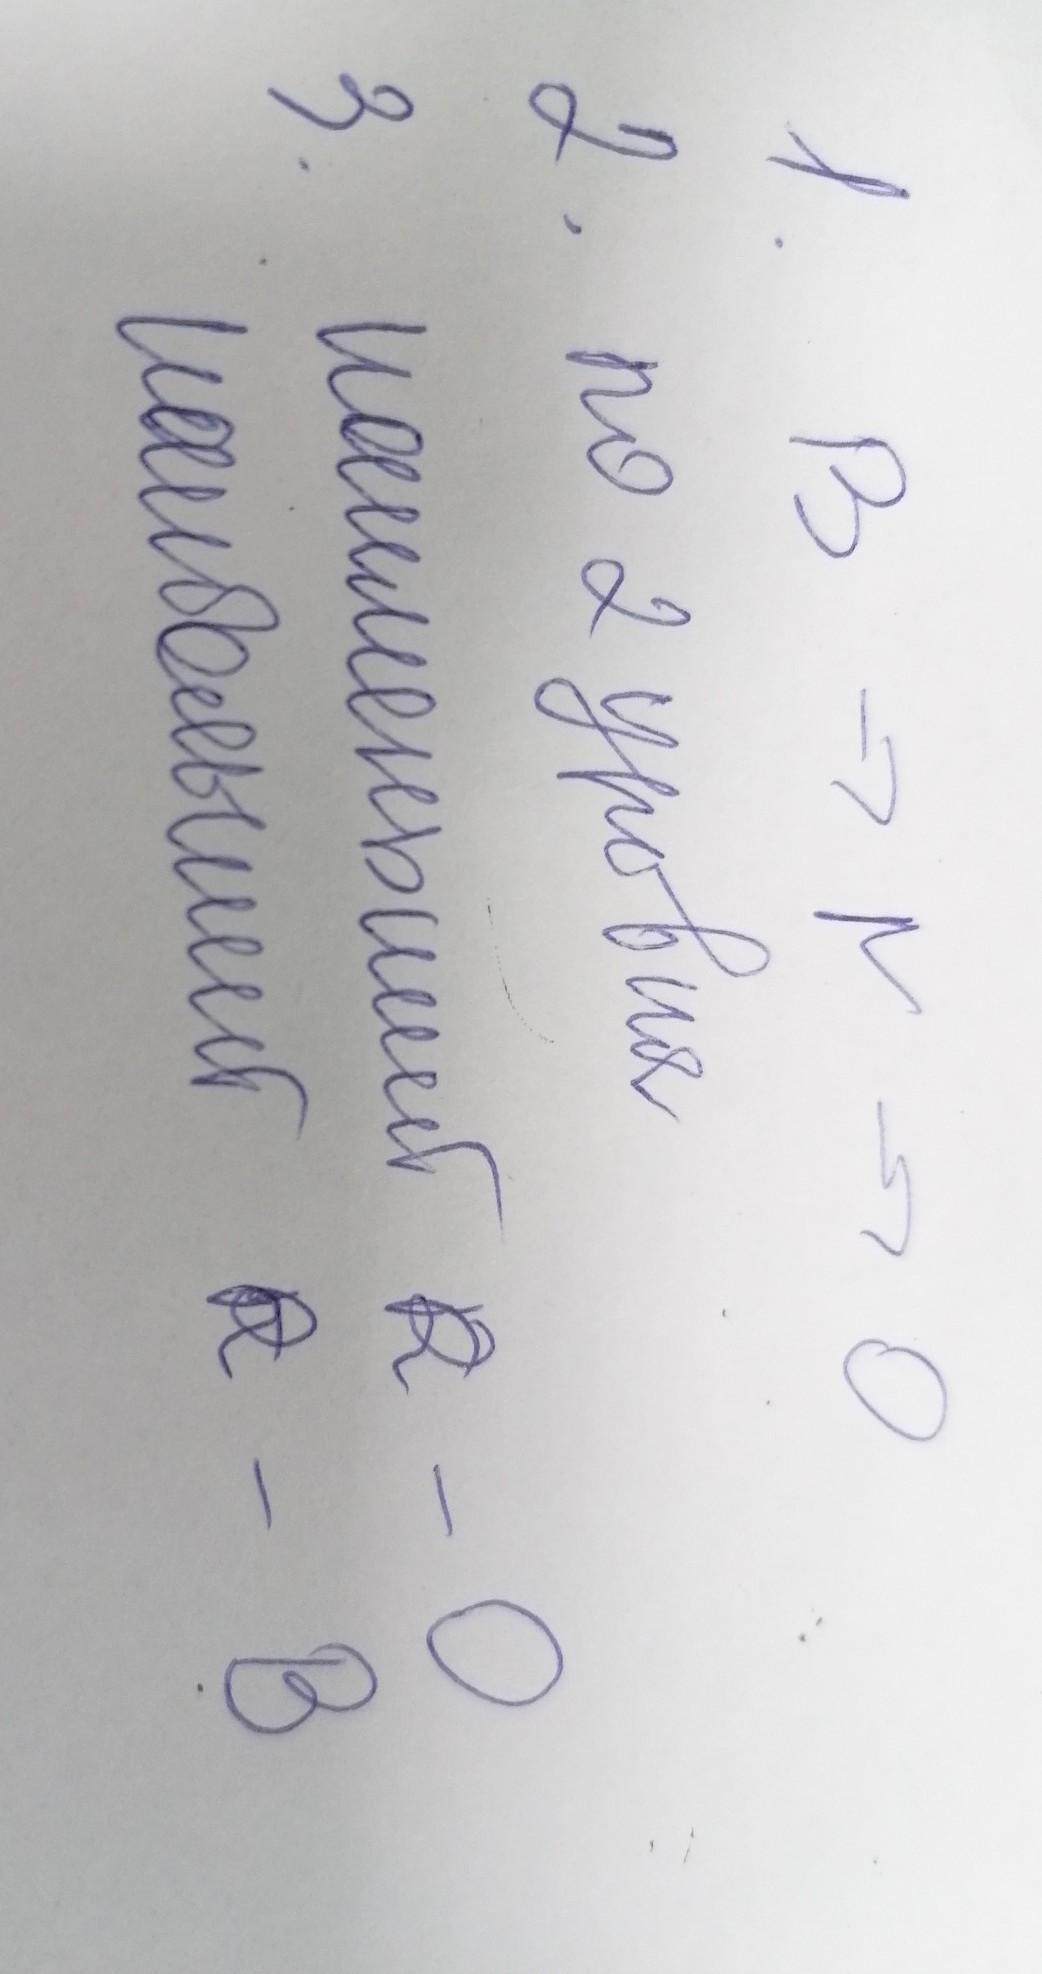 1. B → N → O
2. по 2 уровня
3. наименьший R - O
наибольший R - B